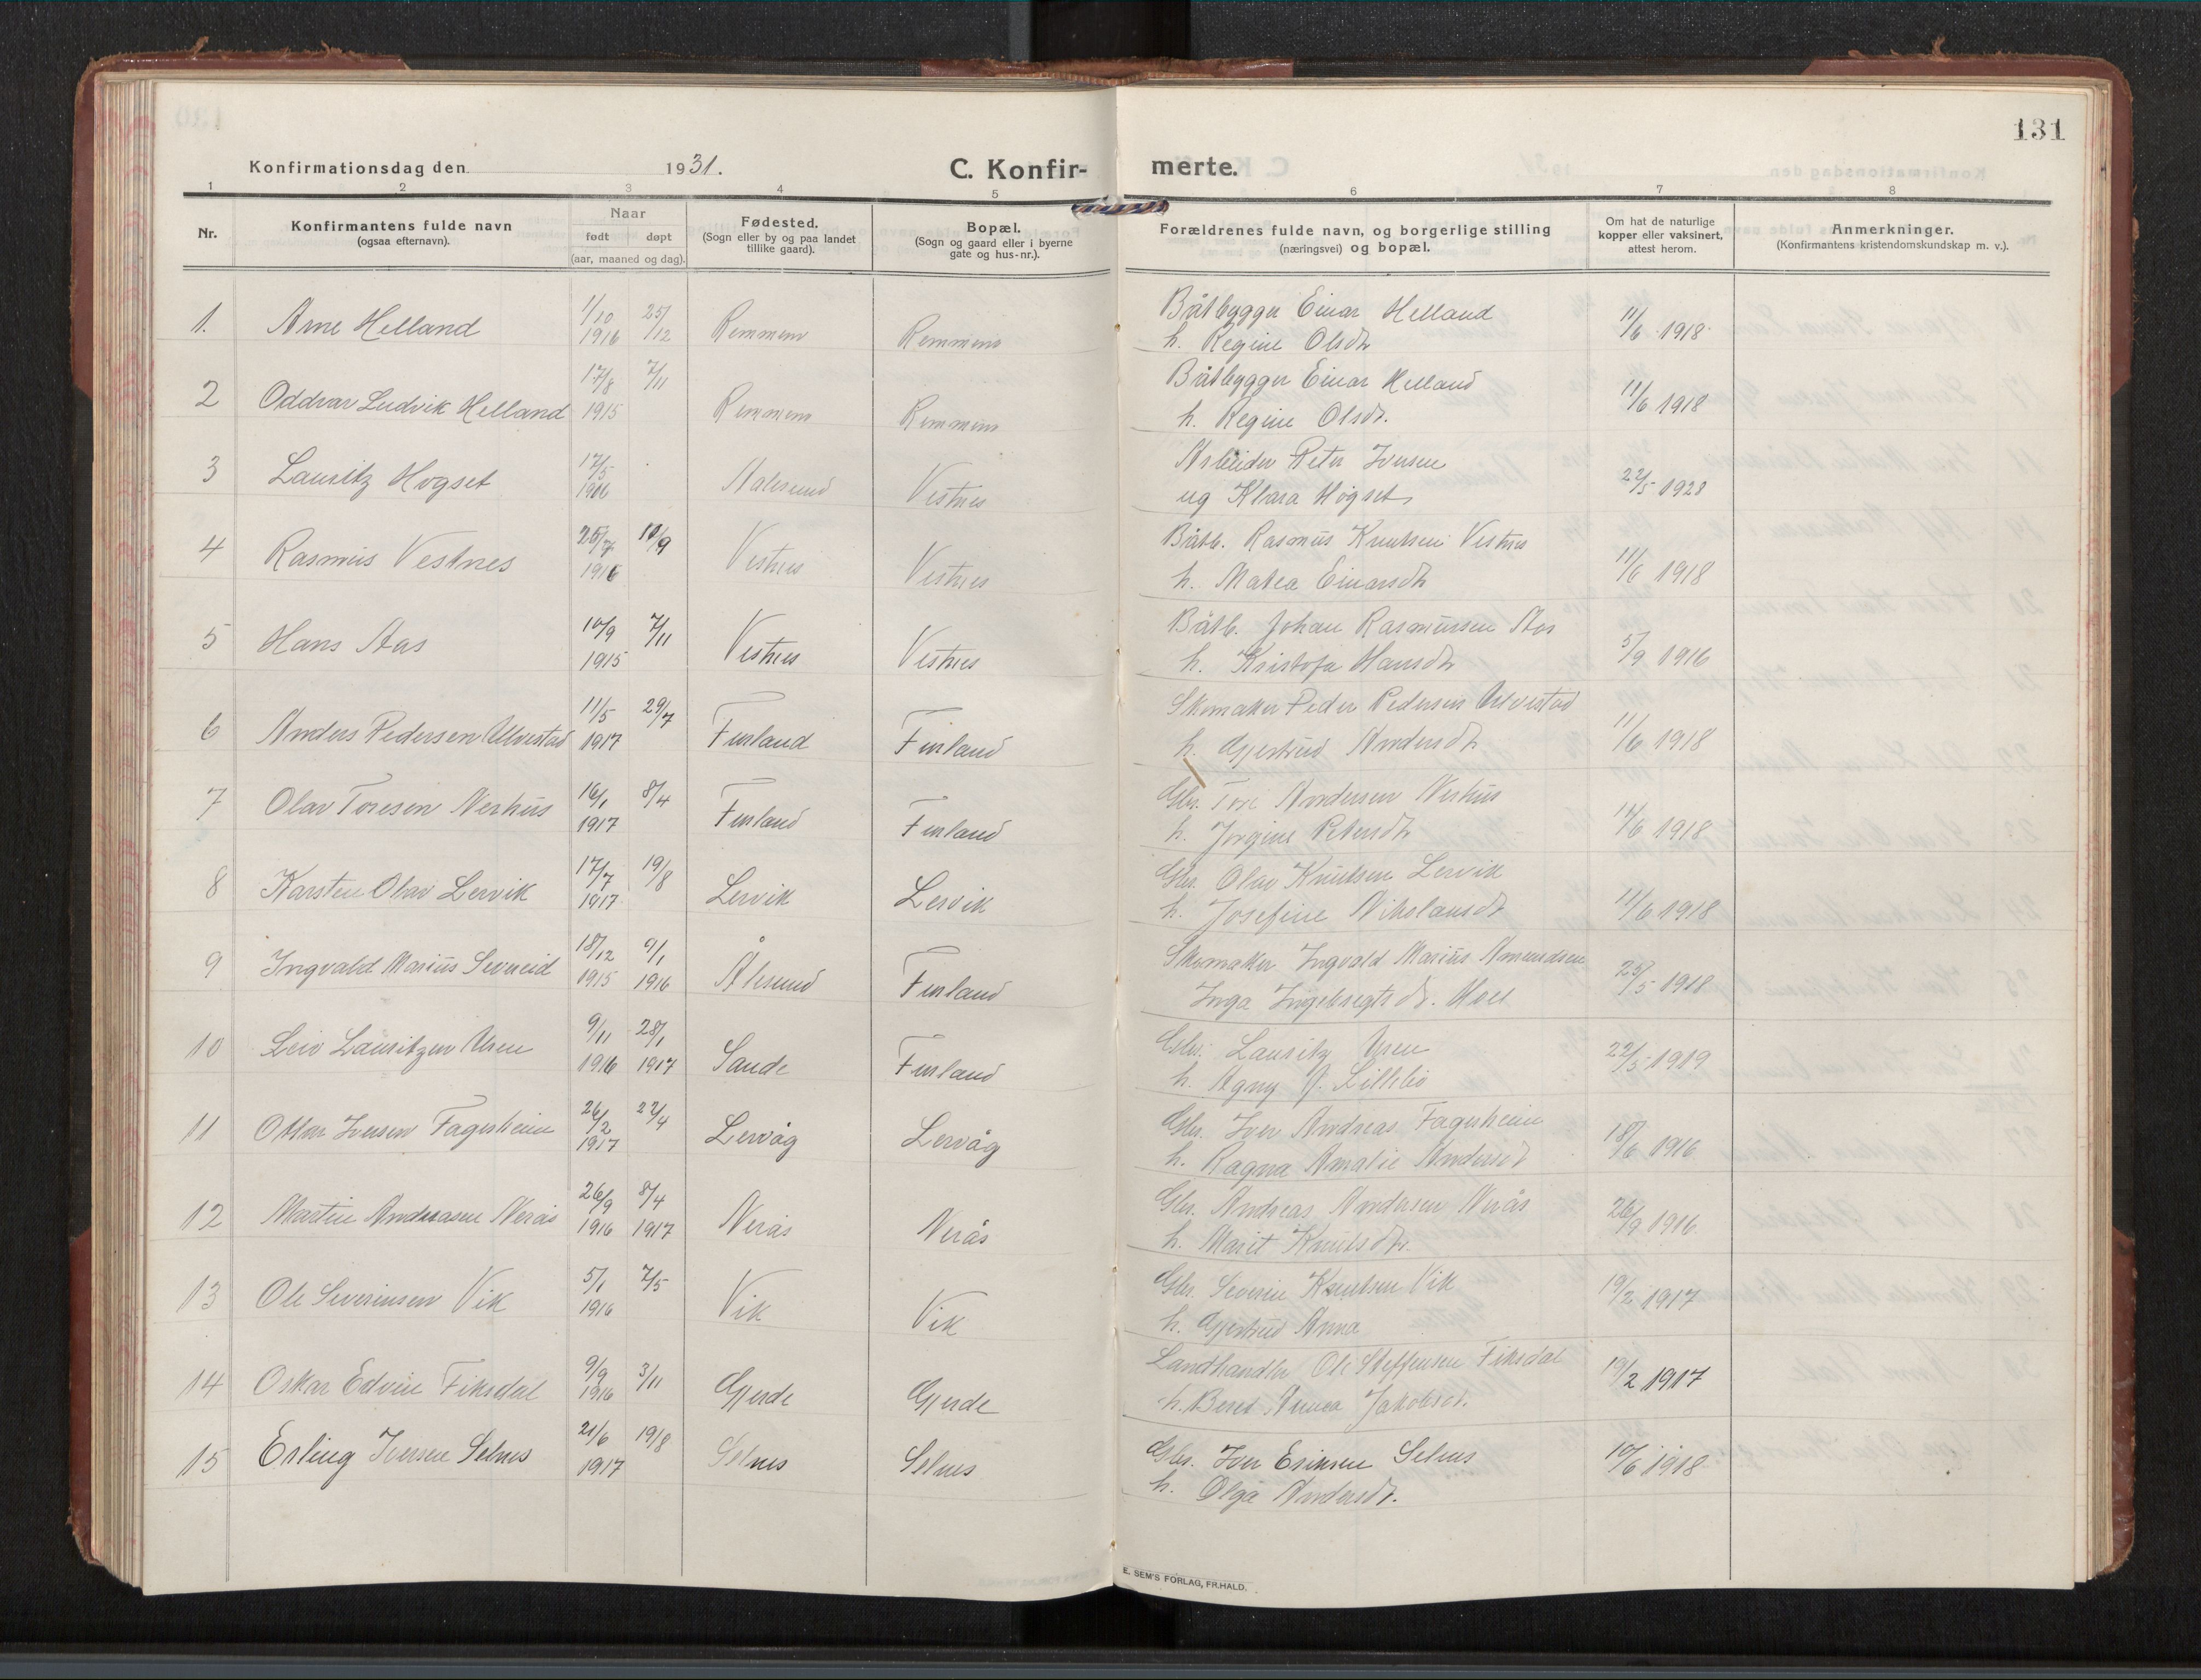 131
Konfirmationsdag den 1931. C. Konfirmerte.
1 2 3 4 5 6 7 8
Nr. Konfirmantens fulde navn (ogsaa efternavn). Naar født døpt (aar, maaned og dag). Fødested. (Sogn eller by og paa landet tillike gaard). Bopæl. (Sogn og gaard eller i byerne gate og hus-nr.). Forældrenes fulde navn, og borgerlige stilling (næringsvei) og bopæl. Om hat de naturlige kopper eller vaksinert, attest herom. Anmerkninger. (Konfirmantens kristendomskundskap m. v.).
1. Arne Helland 1/10 1916 25/12 Remmem Remmem Båtbygger Einar Helland 11/6 1918
h. Regine Olsdtr
2 Oddvar Ludvik Helland 17/8 1915 7/11 Remmem Remmem Båtbygger Einar Helland 11/6 1918
h. Regine Olsdt.
3 Lauritz Hogset 17/5 Aalesund Vestnes Arbeider Peter Iversen 22/5 1928
ug Klara Høgset
4 Rasmus Vestnes 1916 Vestnes Vestnes Båtb. Rasmus Knutsen Vestnes 11/6 1918
h. Matea Einarsdtr
5 Hans Aas 10/9 1915 7/11 Vestnes Vestnes Båtb. Johan Rasmussen Aas 5/9 1916
h. Kristofa Hansdtr
6 Anders Pedersen Ulvestad 11/5 1917 29/7 Furland Furland Skomaker Peder Pedersen Ulvestad 11/6 1918
h. Gjertrud Andersdtr
7 Olav Toresen Nerhus 16/1 1917 8/4 Furland Furland Gbr. Tore Andersen Nerhus 11/6 1918
h. Jørgine Petersdtr
8 Karsten Olav Lervik 17/7 1917 19/8 Lervik Lervik Gbr. Olav Knutsen Lervik 11/6 1918
h. Josefine Nikolausdt
9 Ingvald Marius Severeid 18/12 1915 9/1 1916 Ålesund Furland Skomaker Ingvald Marius Amundsen 25/5 1918
Inga Ingebregtsdt. Moe
10 Leiv Lauritzen Uren 9/11 1916 28/1 1917 Sande Furland Gbr. Lauritz Uren 22/5 1919
h. Agny J. Lillebø
11 Ottar Iversen Fagerheim 26/2 1917 22/4 Lervåg Lervåg Gbr. Iver Andreas Fagerheim 18/6 1916
h. Ragna Amalie Andersdt
12 Martin Andreasen Nerås 26/9 1916 8/4 1917 Nerås Nerås Gbr. Andreas Andersen Nerås 26/9 1916
h. Marit Knutsdtr.
13 Ole Severinsen Vik 5/1 1916 7/5 Vik Vik Gbr. Severin Knutsen Vik 19/2 1917
h. Gjertrud Anna
14 Oskar Edvin Fiksdal 9/9 1916 3/11 Gjerde Gjerde Landhandler Ole Steffensen Fiksdal 19/2 1917
h. Beret Anna Jakobsdt.
15 Erling Iversen Selnes 21/6 1917 19/8 Selnes Selnes Gbr. Iver Eriksen Selnes 10/6 1918
h. Olga Andersdt.
E. SEM'S FORLAG, FR.HALD.